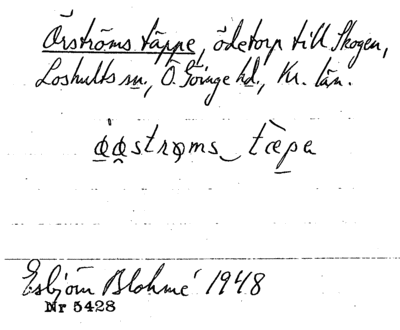 Örströms täppe, ödetorp till Skogen,
Loshults sn., Ö. Göinge hd., Kr. län.
tæpa
Esbjörn Blohmé 1948
Nr 5428